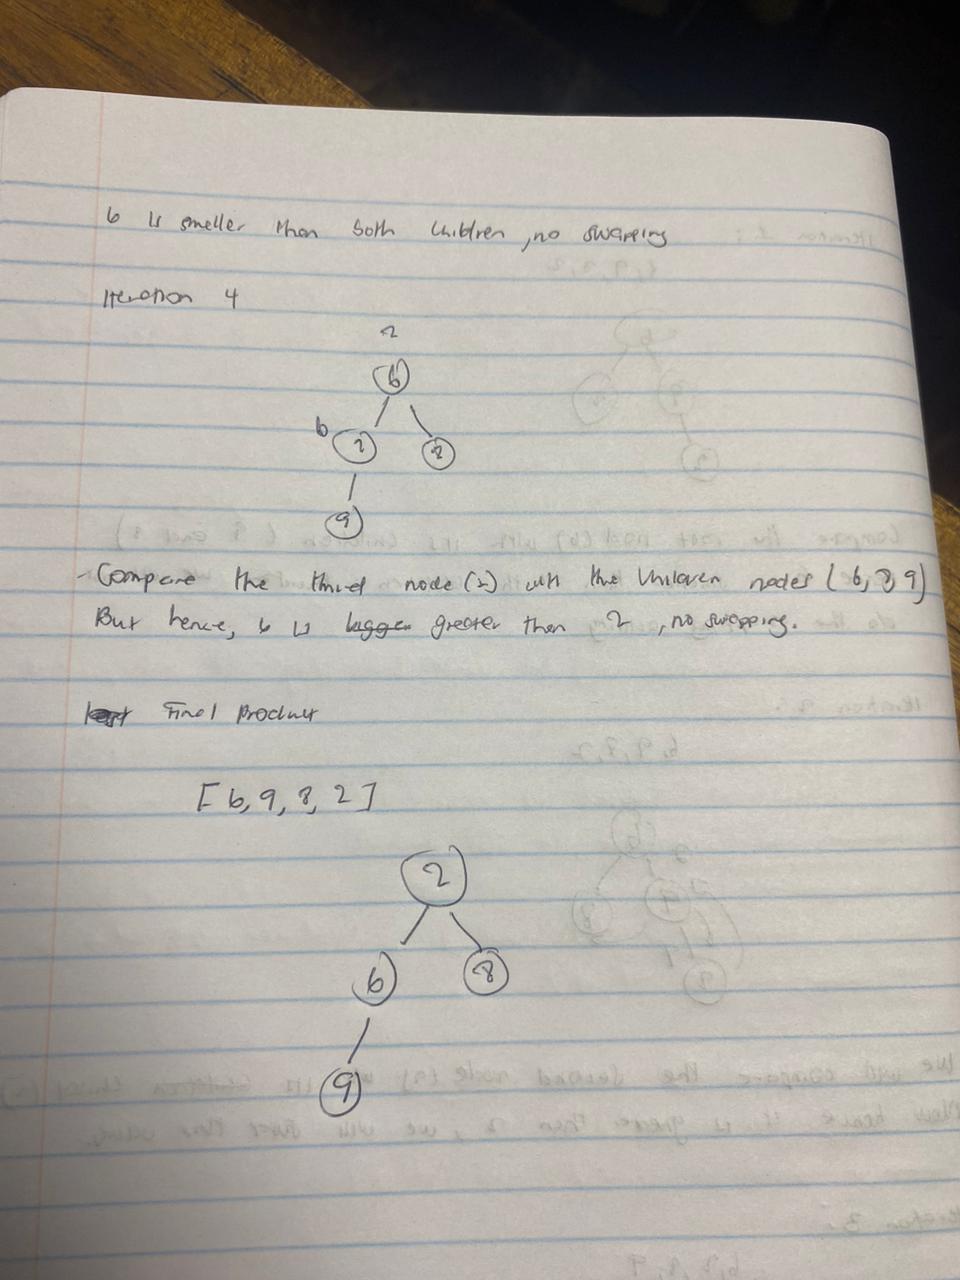 6 is smaller than both children, no swapping
Iteration 4
2
6
6 2 8
9
- Compare the third node (2) with the children nodes (6, 8, 9)
But hence, 6 is greater then 2, no swapping.
Final product
[6, 9, 8, 2]
2
6 8
9